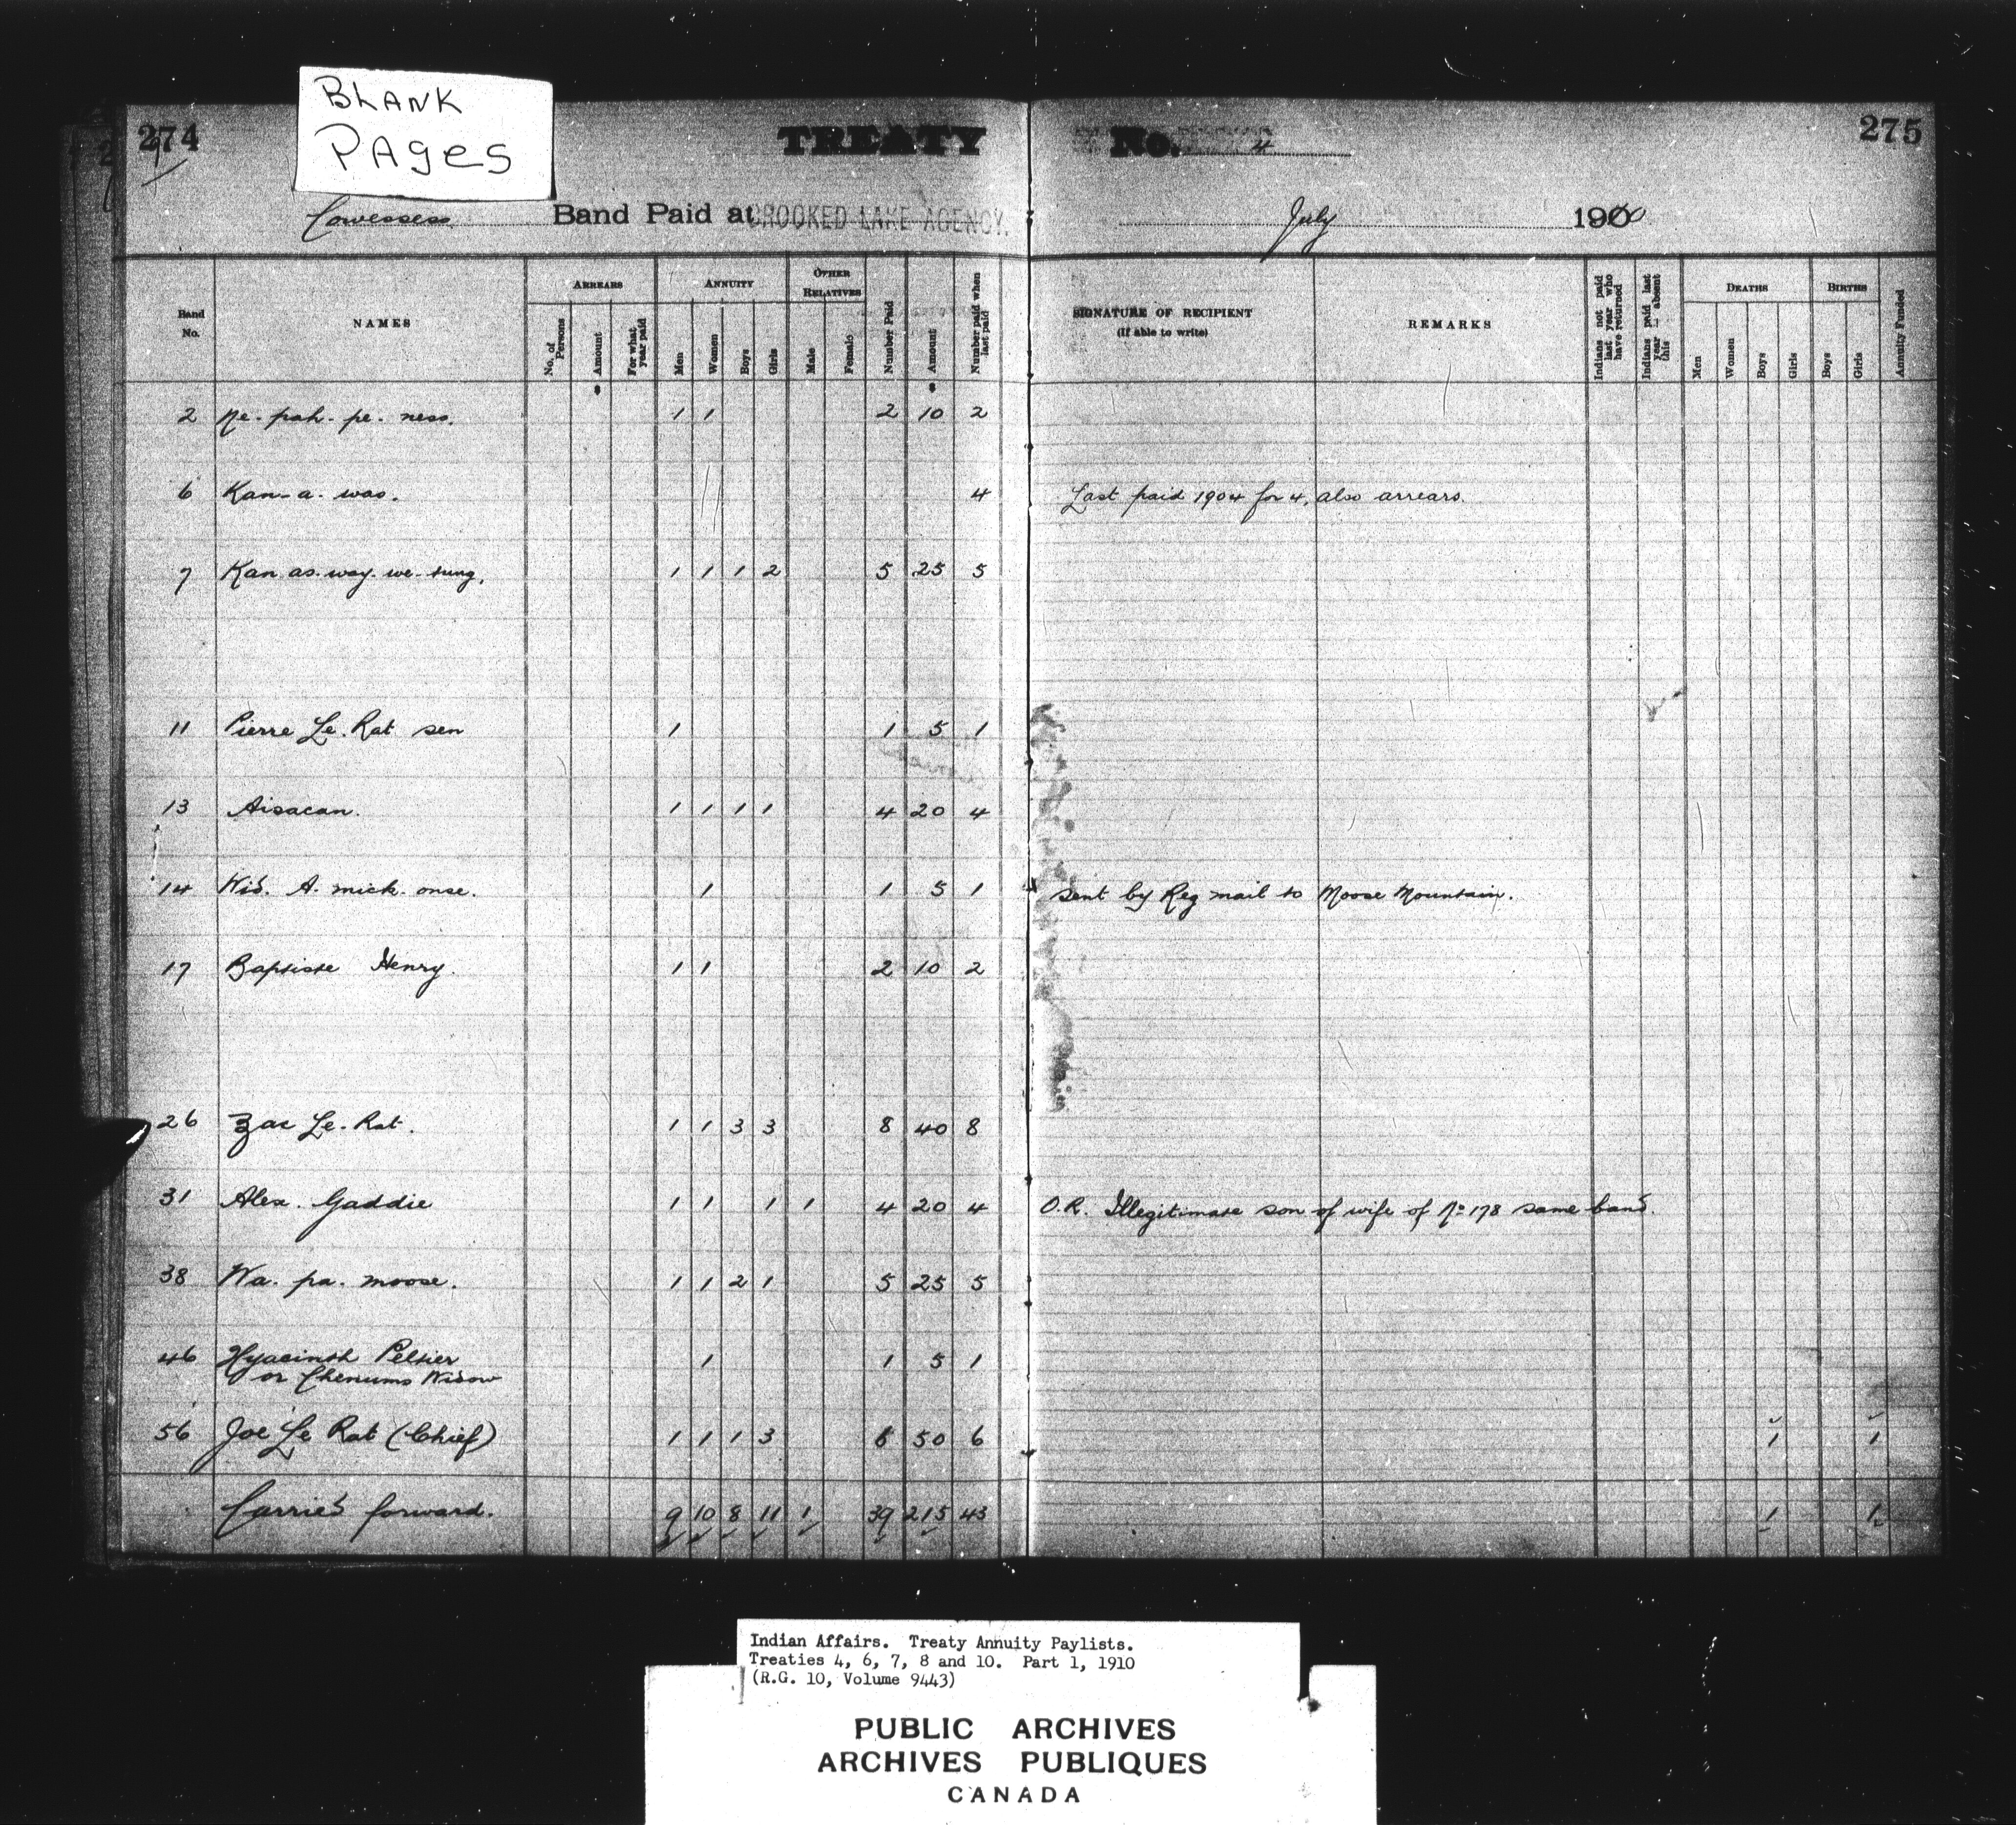 BLANK
PAGES
274
TREATY No. 4
275
Cowessess Band Paid at CROOKED LAKE AGENCY. July 1910
Band No. NAMES ARREARS No. of Persons Amount For what year paid ANNUITY Men Women Boys Girls OTHER RELATIVES Male Female Number Paid Amount Number paid when last paid SIGNATURE OF RECIPIENT (If able to write) REMARKS Indians not paid last year who have returned Indians paid last year absent this DEATHS Men Women Boys Girls BIRTHS Boys Girls Annuity Funded
2 Ne-pah-pe-ness. 1 1 2 10 2
6 Kan-a-was. 4 Last paid 1904 for 4, also arrears.
7 Kan-as-way-we-tung. 1 1 1 2 5 25 5
11 Pierre Le Rat sen 1 1 5 1
13 Aisacan. 1 1 1 1 4 20 4
14 Wid. A-mick-onse. 1 1 5 1 sent by Reg mail to Moose Mountain.
17 Baptiste Henry. 1 1 2 10 2
26 Zac Le-Rat. 1 1 3 3 8 40 8
31 Alex. Gaddie 1 1 1 1 4 20 4 O.R. Illegitimate son of wife of No 178 same band.
38 Wa-pa-moose. 1 1 2 1 5 25 5
46 Hyacinth Peltier 1 1 5 1
or Chenums Widow
56 Joe Le Rat (Chief) 1 1 1 3 6 50 6 1 1
Carried forward. 9 10 8 11 1 39 215 43 1 1
Indian Affairs. Treaty Annuity Paylists.
Treaties 4, 6, 7, 8 and 10. Part 1, 1910
(R.G. 10, Volume 9443)
PUBLIC ARCHIVES
ARCHIVES PUBLIQUES
CANADA